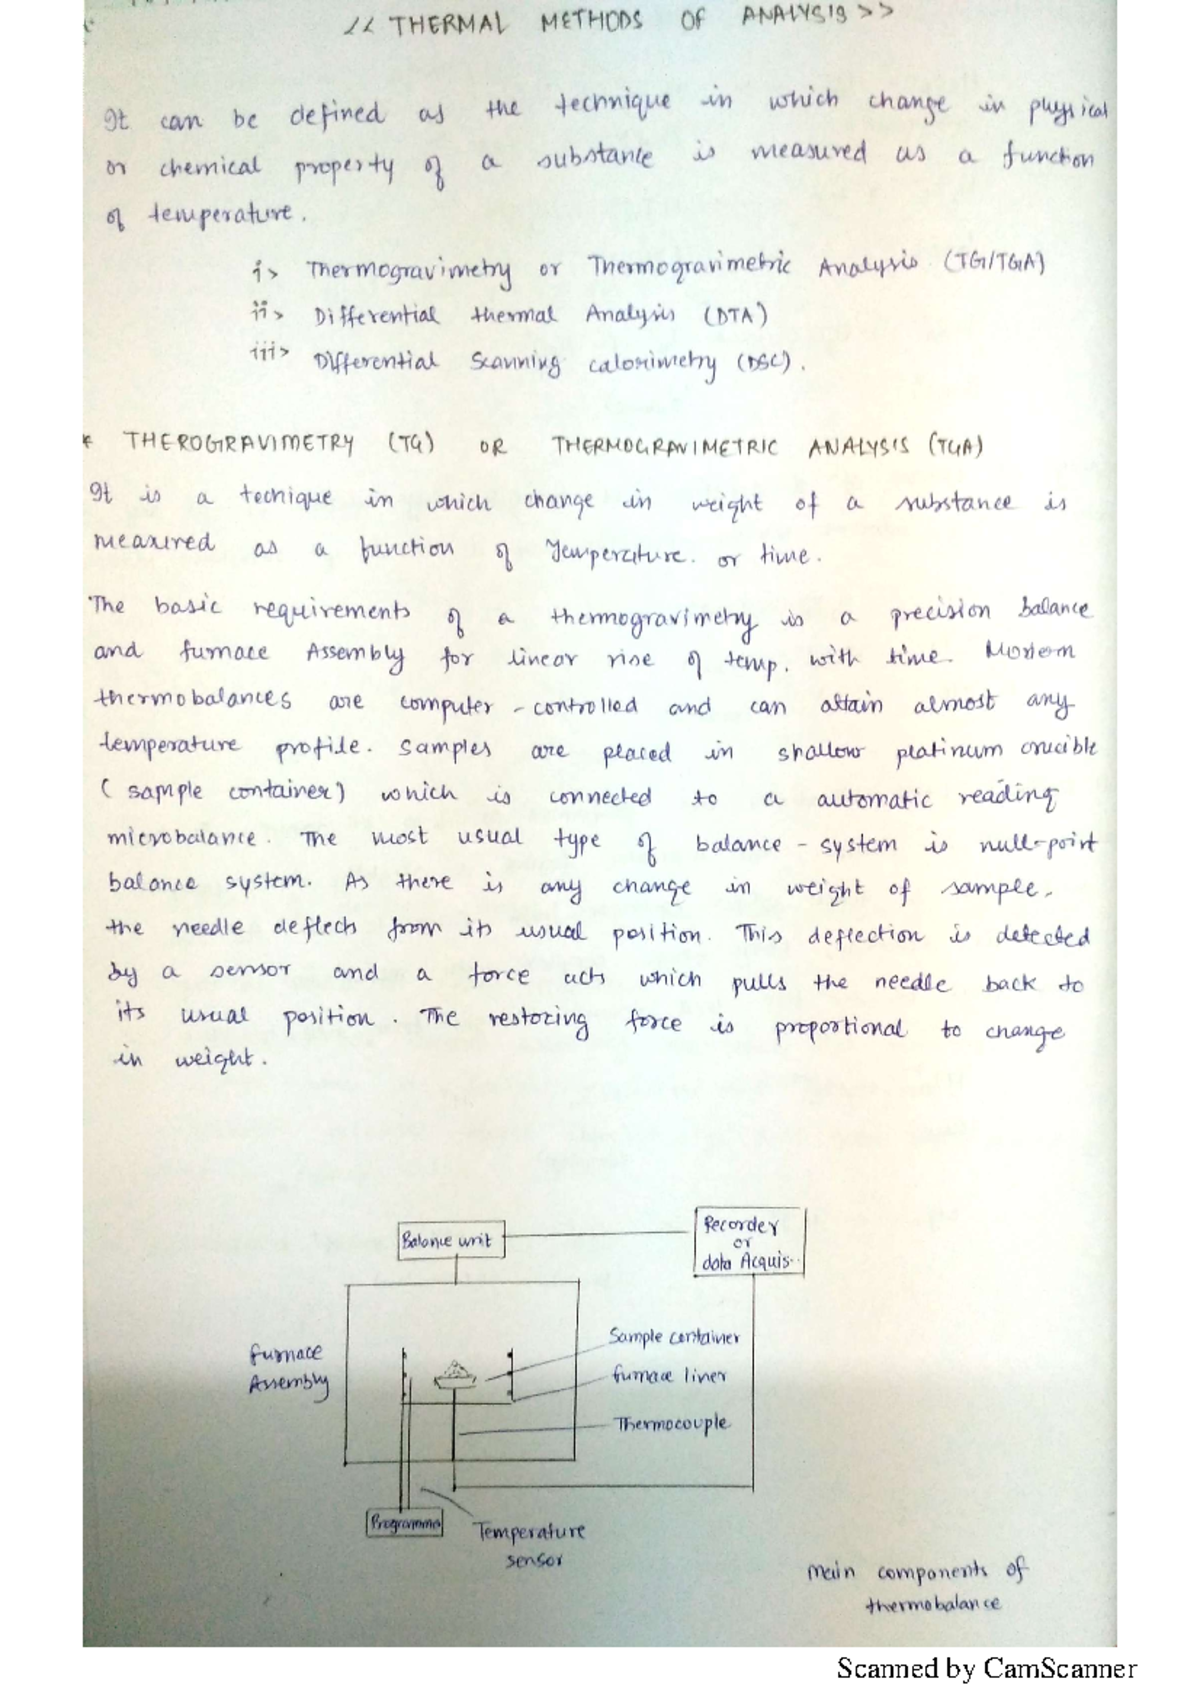 << THERMAL METHODS OF ANALYSIS >>
It can be defined as the technique in which change in physical
or chemical property of a substance is measured as a function
of temperature.
i> Thermogravimetry or Thermogravimetric Analysis (TG/TGA)
ii> Differential thermal Analysis (DTA)
iii> Differential Scanning calorimetry (DSC).
* THEROGRAVIMETRY (TG) OR THERMOGRAVIMETRIC ANALYSIS (TGA)
It is a technique in which change in weight of a substance is
measured as a function of Temperature. or time.
The basic requirements of a thermogravimetry is a precision balance
and furnace Assembly for linear rise of temp. with time. Modern
thermobalances are computer-controlled and can attain almost any
temperature profile. Samples are placed in shallow platinum crucible
(sample container) which is connected to a automatic reading
microbalance. The most usual type of balance-system is null-point
balance system. As there is any change in weight of sample,
the needle deflects from its usual position. This deflection is detected
by a sensor and a force acts which pulls the needle back to
its usual position. The restoring force is proportional to change
in weight.
Balance unit
Recorder
or
data Acquis..
Furnace
Assembly
Sample container
furnace liner
Thermocouple
Programme
Temperature
sensor
Main components of
thermobalance
Scanned by CamScanner